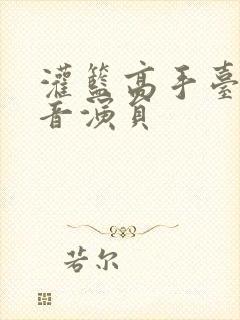 灌籃高手臺
音演員
若尔